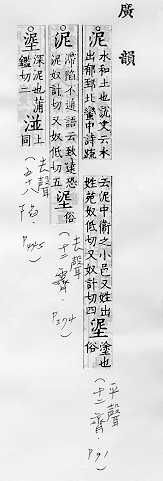 廣韻
泥水和土也說文云水出郁郅北蠻中詩疏云泥中衛之小邑又姓出姓苑奴低切又奴計切四
塗也俗
(平聲十二齊.P91)
泥滯陷不通語云致遠恐泥又奴計切又奴低切五
埿俗
(去聲十二霽.P374)
埿深泥也蒲鑑切二
湴上同
(去聲五十八陷.P445)